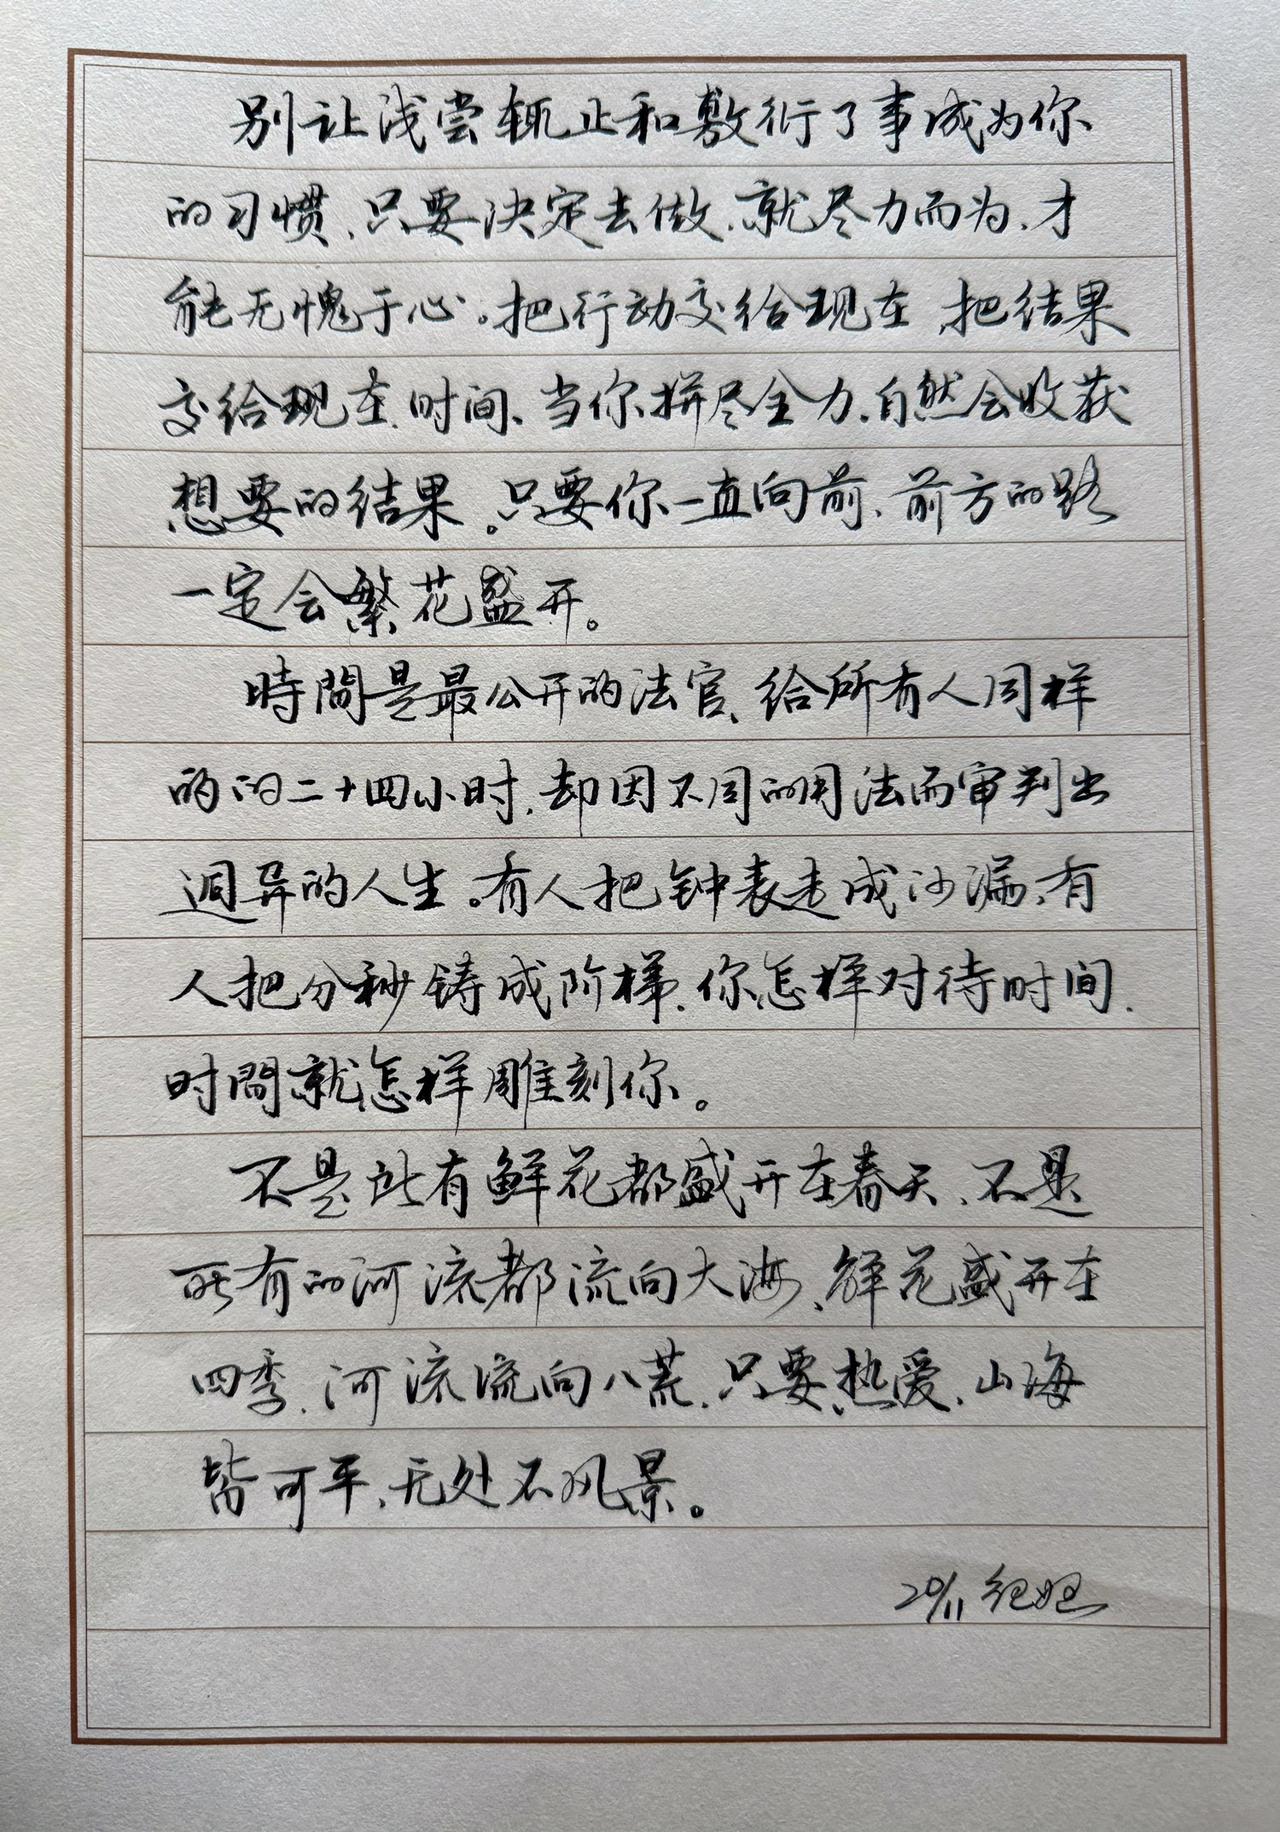 别让浅尝辄止和敷衍了事成为你
的习惯、只要决定去做、就尽力而为、才
能无愧于心。把行动交给现在、把结果
交给现在、时间、当你拼尽全力、自然会收获
想要的结果。只要你一直向前、前方的路
一定会繁花盛开。
時間是最公开的法官、给所有人同样
的的二十四小时、却因不同的用法而审判出
迥异的人生。有人把钟表走成沙漏、有
人把分秒铸成阶梯、你怎样对待时间、
时間就怎样雕刻你。
不是所有鲜花都盛开在春天、不是
所有的河流都流向大海、鲜花盛开在
四季、河流流向八荒、只要热爱、山海
皆可平、无处不风景。
20/11